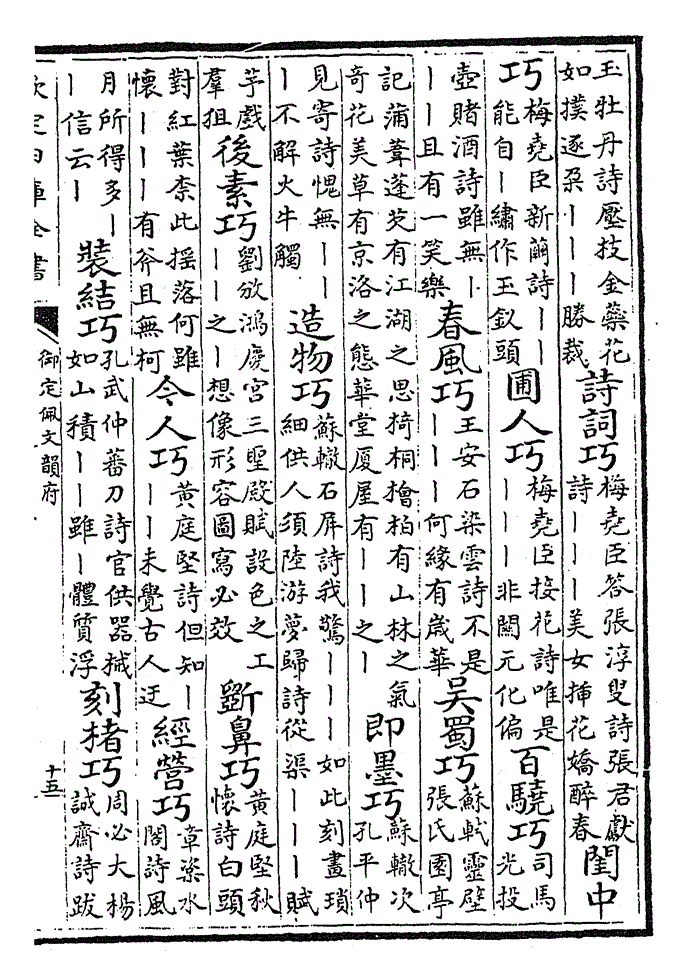 玉牡丹詩壓技金蘂花如撲逐朶｜｜｜勝裁詩詞巧梅堯臣答張淳叟詩張君獻詩｜｜｜美女揷花嬌醉春閨中
巧梅堯臣新繭詩｜｜能自｜繡作玉釵頭圃人巧梅堯臣接花詩唯是｜｜｜非關元化偏百驍巧司馬光投
壺賭酒詩雖無｜｜｜且有一笑樂春風巧王安石染雲詩不是｜｜｜何緣有歲華吳蜀巧蘇軾靈壁張氏園亭
記蒲葦蓬芡有江湖之思猗桐檜柏有山林之氣奇花美草有京洛之態華堂厦屋有｜｜之｜即墨巧蘇轍次孔平仲
見寄詩愧無｜｜｜不解火牛觸造物巧蘇轍石屏詩我驚｜｜｜如此刻畫瑣細供人須陸游夢歸詩從渠｜｜｜賦
芧戲羣狙後素巧劉攽鴻慶宮三聖殿賦設色之工｜｜之｜想像形容圖寫必效斵鼻巧黃庭堅秋懷詩白頭
對紅葉柰此摇落何雖懷｜｜｜有斧且無柯令人巧黃庭堅詩但知｜｜｜未覺古人迂經營巧章楶水閣詩風
月所得多｜｜信云｜裝結巧孔武仲蕃刀詩官供器械如山積｜｜雖｜體質浮刻楮巧周必大楊誠齋詩跋
欽定四庫全書
御定佩文韻府
十五